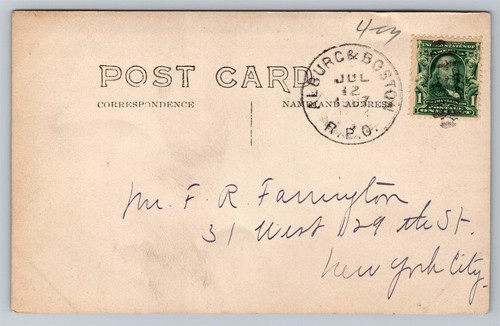 4cy
POST CARD
CORRESPONDENCE
NAME AND ADDRESS
ALBURG & BOSTON
JUL
12
R.P.O.
1 1
Mr. F. R. Farrington
31 West 129 th St.
New York City.